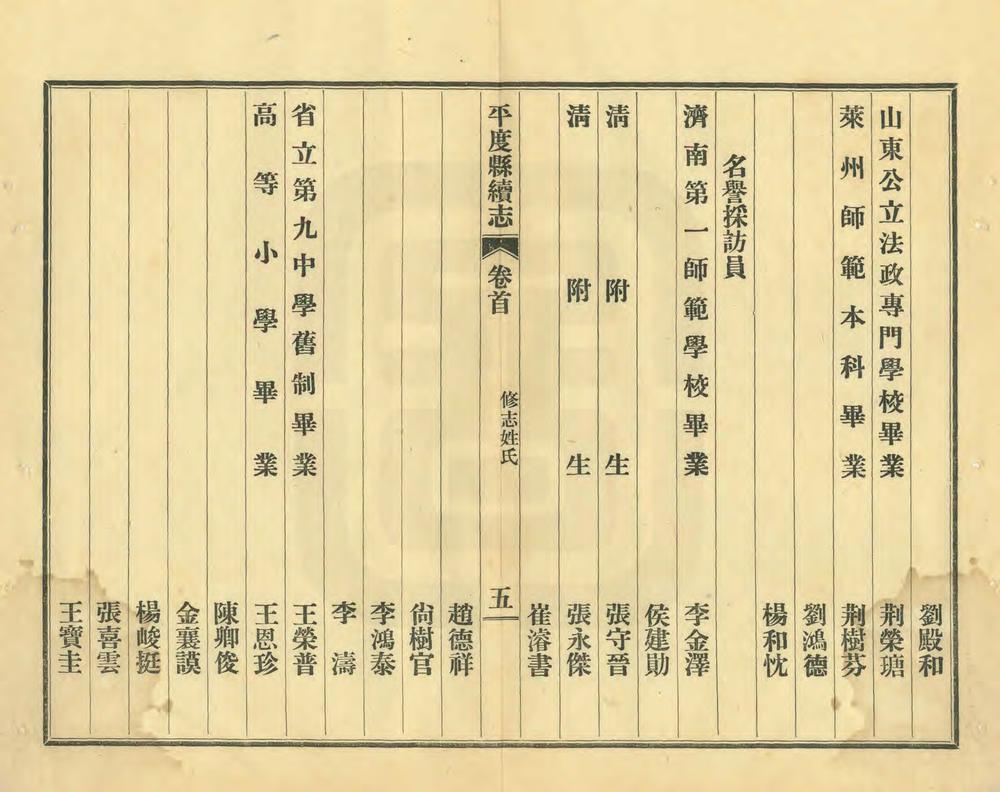 劉殿和
山東公立法政專門學校畢業 荆榮瑭
萊州師範本科畢業 荆樹芬
劉鴻德
楊和忱
名譽採訪員
濟南第一師範學校畢業 李金澤
侯建勛
淸附生 張守晉
淸附生 張永傑
崔濬書
平度縣續志 卷首 修志姓氏 五
趙德祥
尙樹官
李鴻泰
李濤
省立第九中學舊制畢業 王榮普
高等小學畢業 王恩珍
陳卿俊
金襄謨
楊峻挺
張喜雲
王寶圭